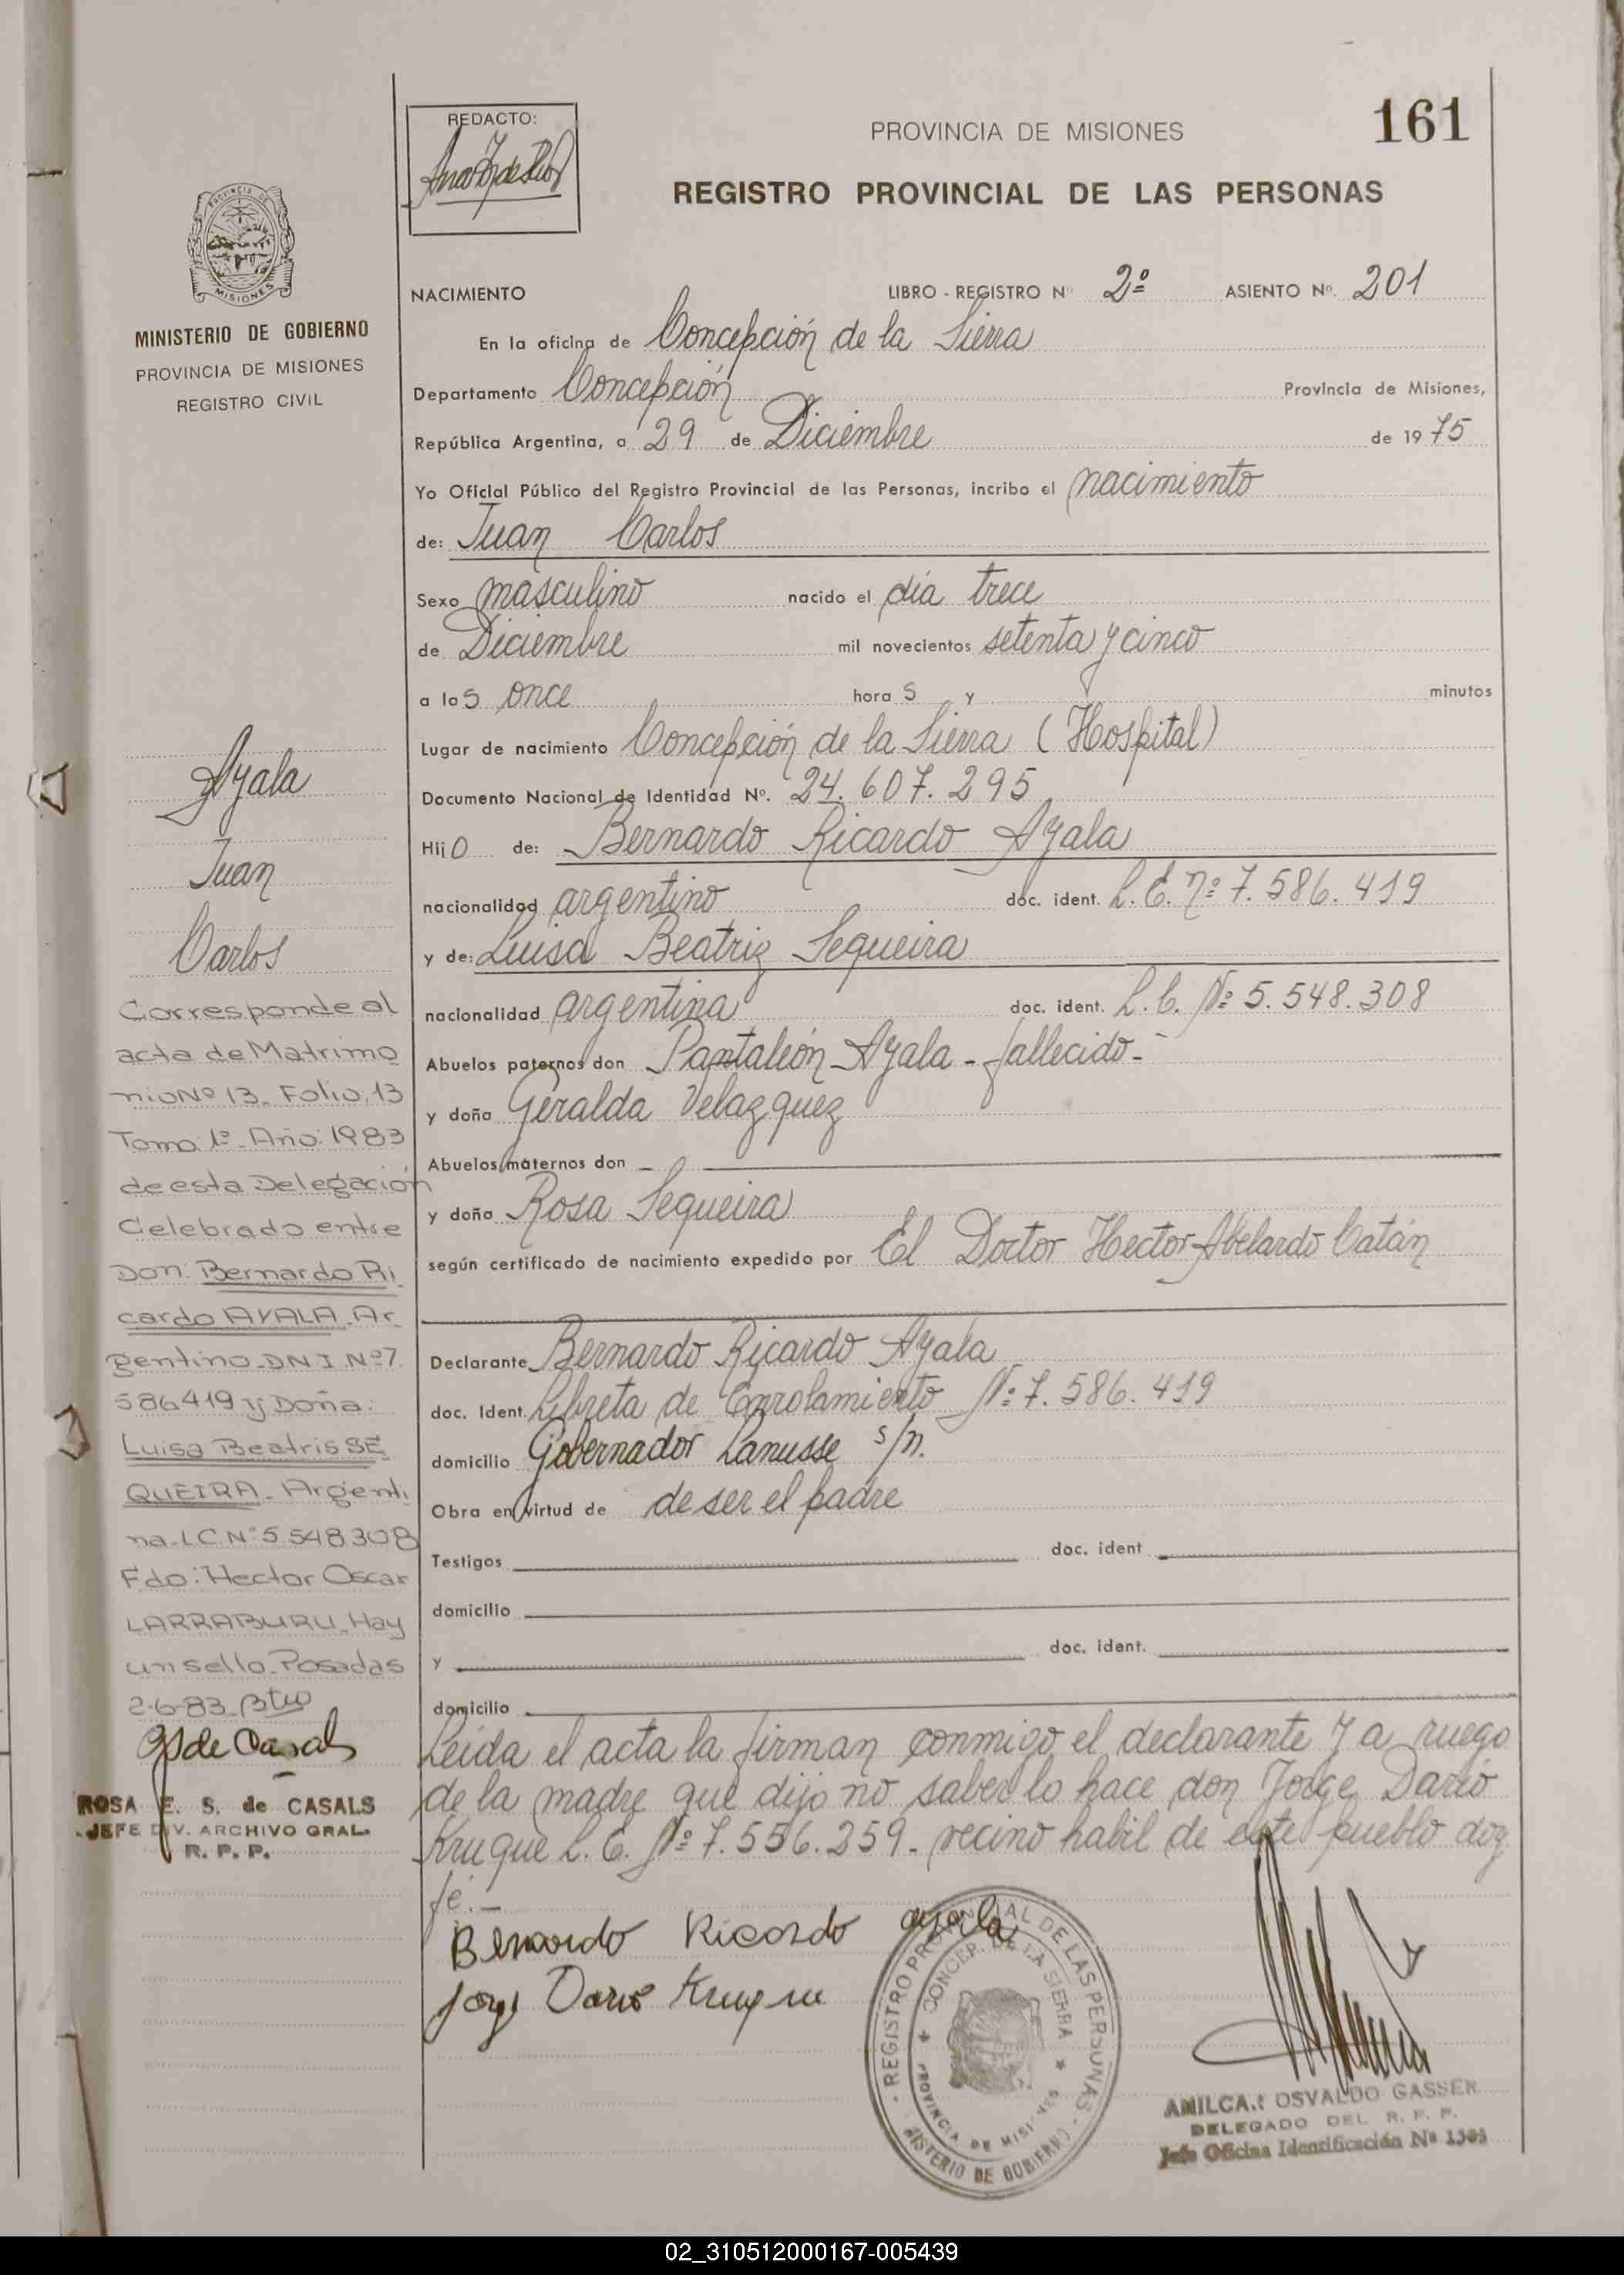 161
REDACTO:
PROVINCIA DE MISIONES
REGISTRO PROVINCIAL DE LAS PERSONAS
PROVINCIA DE
MISIONES
MINISTERIO DE GOBIERNO
PROVINCIA DE MISIONES
REGISTRO CIVIL
NACIMIENTO LIBRO - REGISTRO Nº 2º ASIENTO Nº. 201
En la oficina de Concepción de la Sierra
Departamento Concepción Provincia de Misiones,
República Argentina, a 29 de Diciembre de 1975
Yo Oficial Público del Registro Provincial de las Personas, incribo el nacimiento
de: Juan Carlos
Sexo masculino nacido el día trece
de Diciembre mil novecientos setenta y cinco
a las once horas y minutos
Lugar de nacimiento Concepción de la Sierra (Hospital)
Documento Nacional de Identidad Nº. 24.607.295
Hijo de: Bernardo Ricardo Ayala
nacionalidad argentino doc. ident. L.E. Nº 7.586.419
y de: Luisa Beatriz Sequeira
nacionalidad argentina doc. ident. L.C. Nº 5.548.308
Abuelos paternos don Pantaleón Ayala - fallecido -
y doña Geralda Velazquez
Abuelos maternos don -
y doña Rosa Sequeira
según certificado de nacimiento expedido por El Doctor Hector Abelardo Catán
Declarante Bernardo Ricardo Ayala
doc. Ident. Libreta de Enrolamiento Nº 7.586.419
domicilio Gobernador Lanusse s/n.
Obra en virtud de de ser el padre
Testigos doc. ident
domicilio
y doc. ident.
domicilio
Leída el acta la firman conmigo el declarante y a ruego
de la madre que dijo no saber lo hace don Jorge Darío
Kruque L.E. Nº 7.556.259. vecino habil de este pueblo doy
fé.-
Bernardo Ricardo ayala
Jorge Dario Kruque
Ayala
Juan
Carlos
Corresponde al
acta de Matrimo
nio Nº 13. Folio. 13
Tomo: 1º. Año: 1983
de esta Delegación
Celebrado entre
Don. Bernardo Ri
cardo AYALA. Ar
gentino. DNI. Nº 7.
586419 y Doña:
Luisa Beatris SE
QUEIRA. Argenti
na. LC. Nº 5.548.308
Fdo: Hector Oscar
LARRABURU. Hay
un sello. Posadas
2-6-83.
RS de Casals
ROSA E. S. de CASALS
JEFE DIV. ARCHIVO GRAL.
R. P. P.
REGISTRO PROVINCIAL DE LAS PERSONAS
CONCEP. DE LA SIERRA
PROVINCIA DE MISIONES
MINISTERIO DE GOBIERNO
AMILCAR OSVALDO GASSER
DELEGADO DEL R. P. P.
Jefe Oficina Identificación Nº 1303
02_310512000167-005439